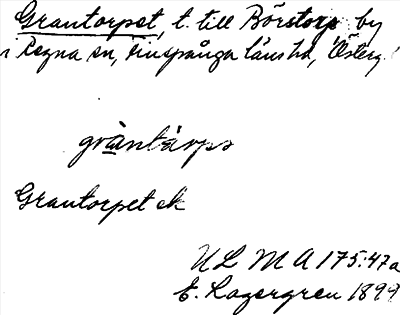 Grantorpet, t. till Börstorp by
i Regna sn, Finspånga läns hd, Österg.
gràntárps
Grantorpet ek
ULMA 175:47a
E. Lagergren 1899